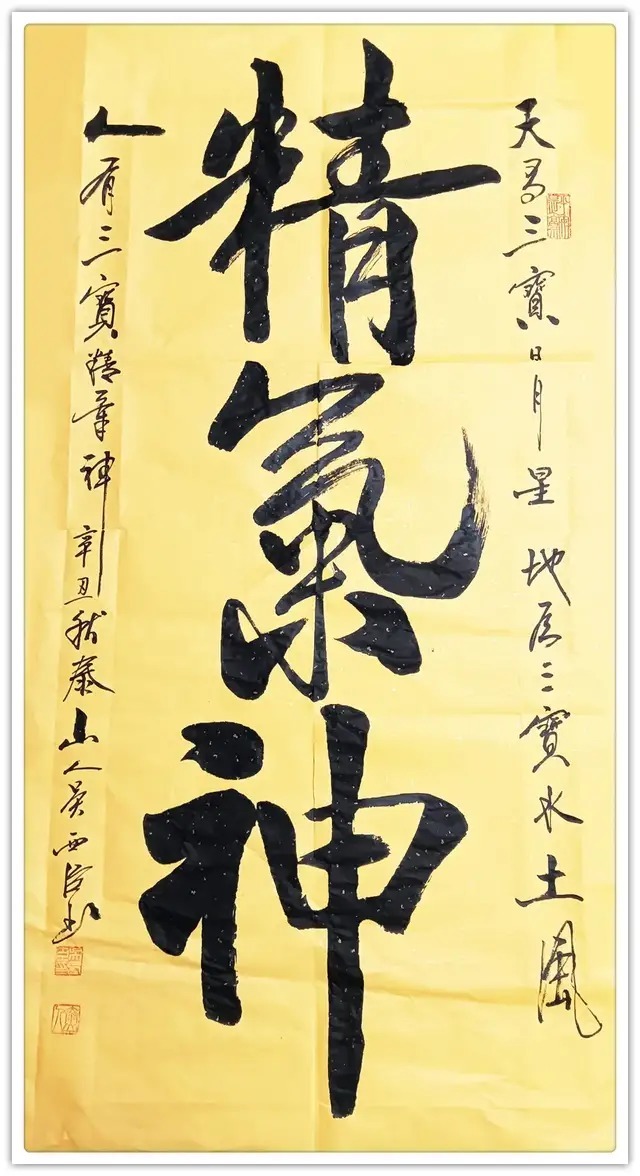 天有三寶日月星地有三寶水土風
精氣神
人有三寶精氣神辛丑秋泰山人吳西臣書